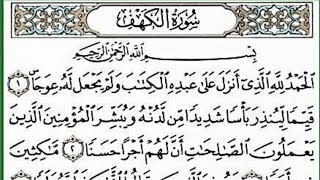 سُورَةُ الْكَهْفِ
بِسْمِ اللَّهِ الرَّحْمَٰنِ الرَّحِيمِ
الْحَمْدُ لِلَّهِ الَّذِي أَنزَلَ عَلَىٰ عَبْدِهِ الْكِتَابَ وَلَمْ يَجْعَل لَّهُ عِوَجًا ١
قَيِّمًا لِّيُنذِرَ بَأْسًا شَدِيدًا مِّن لَّدُنْهُ وَيُبَشِّرَ الْمُؤْمِنِينَ الَّذِينَ
يَعْمَلُونَ الصَّالِحَاتِ أَنَّ لَهُمْ أَجْرًا حَسَنًا ٢ مَّاكِثِينَ